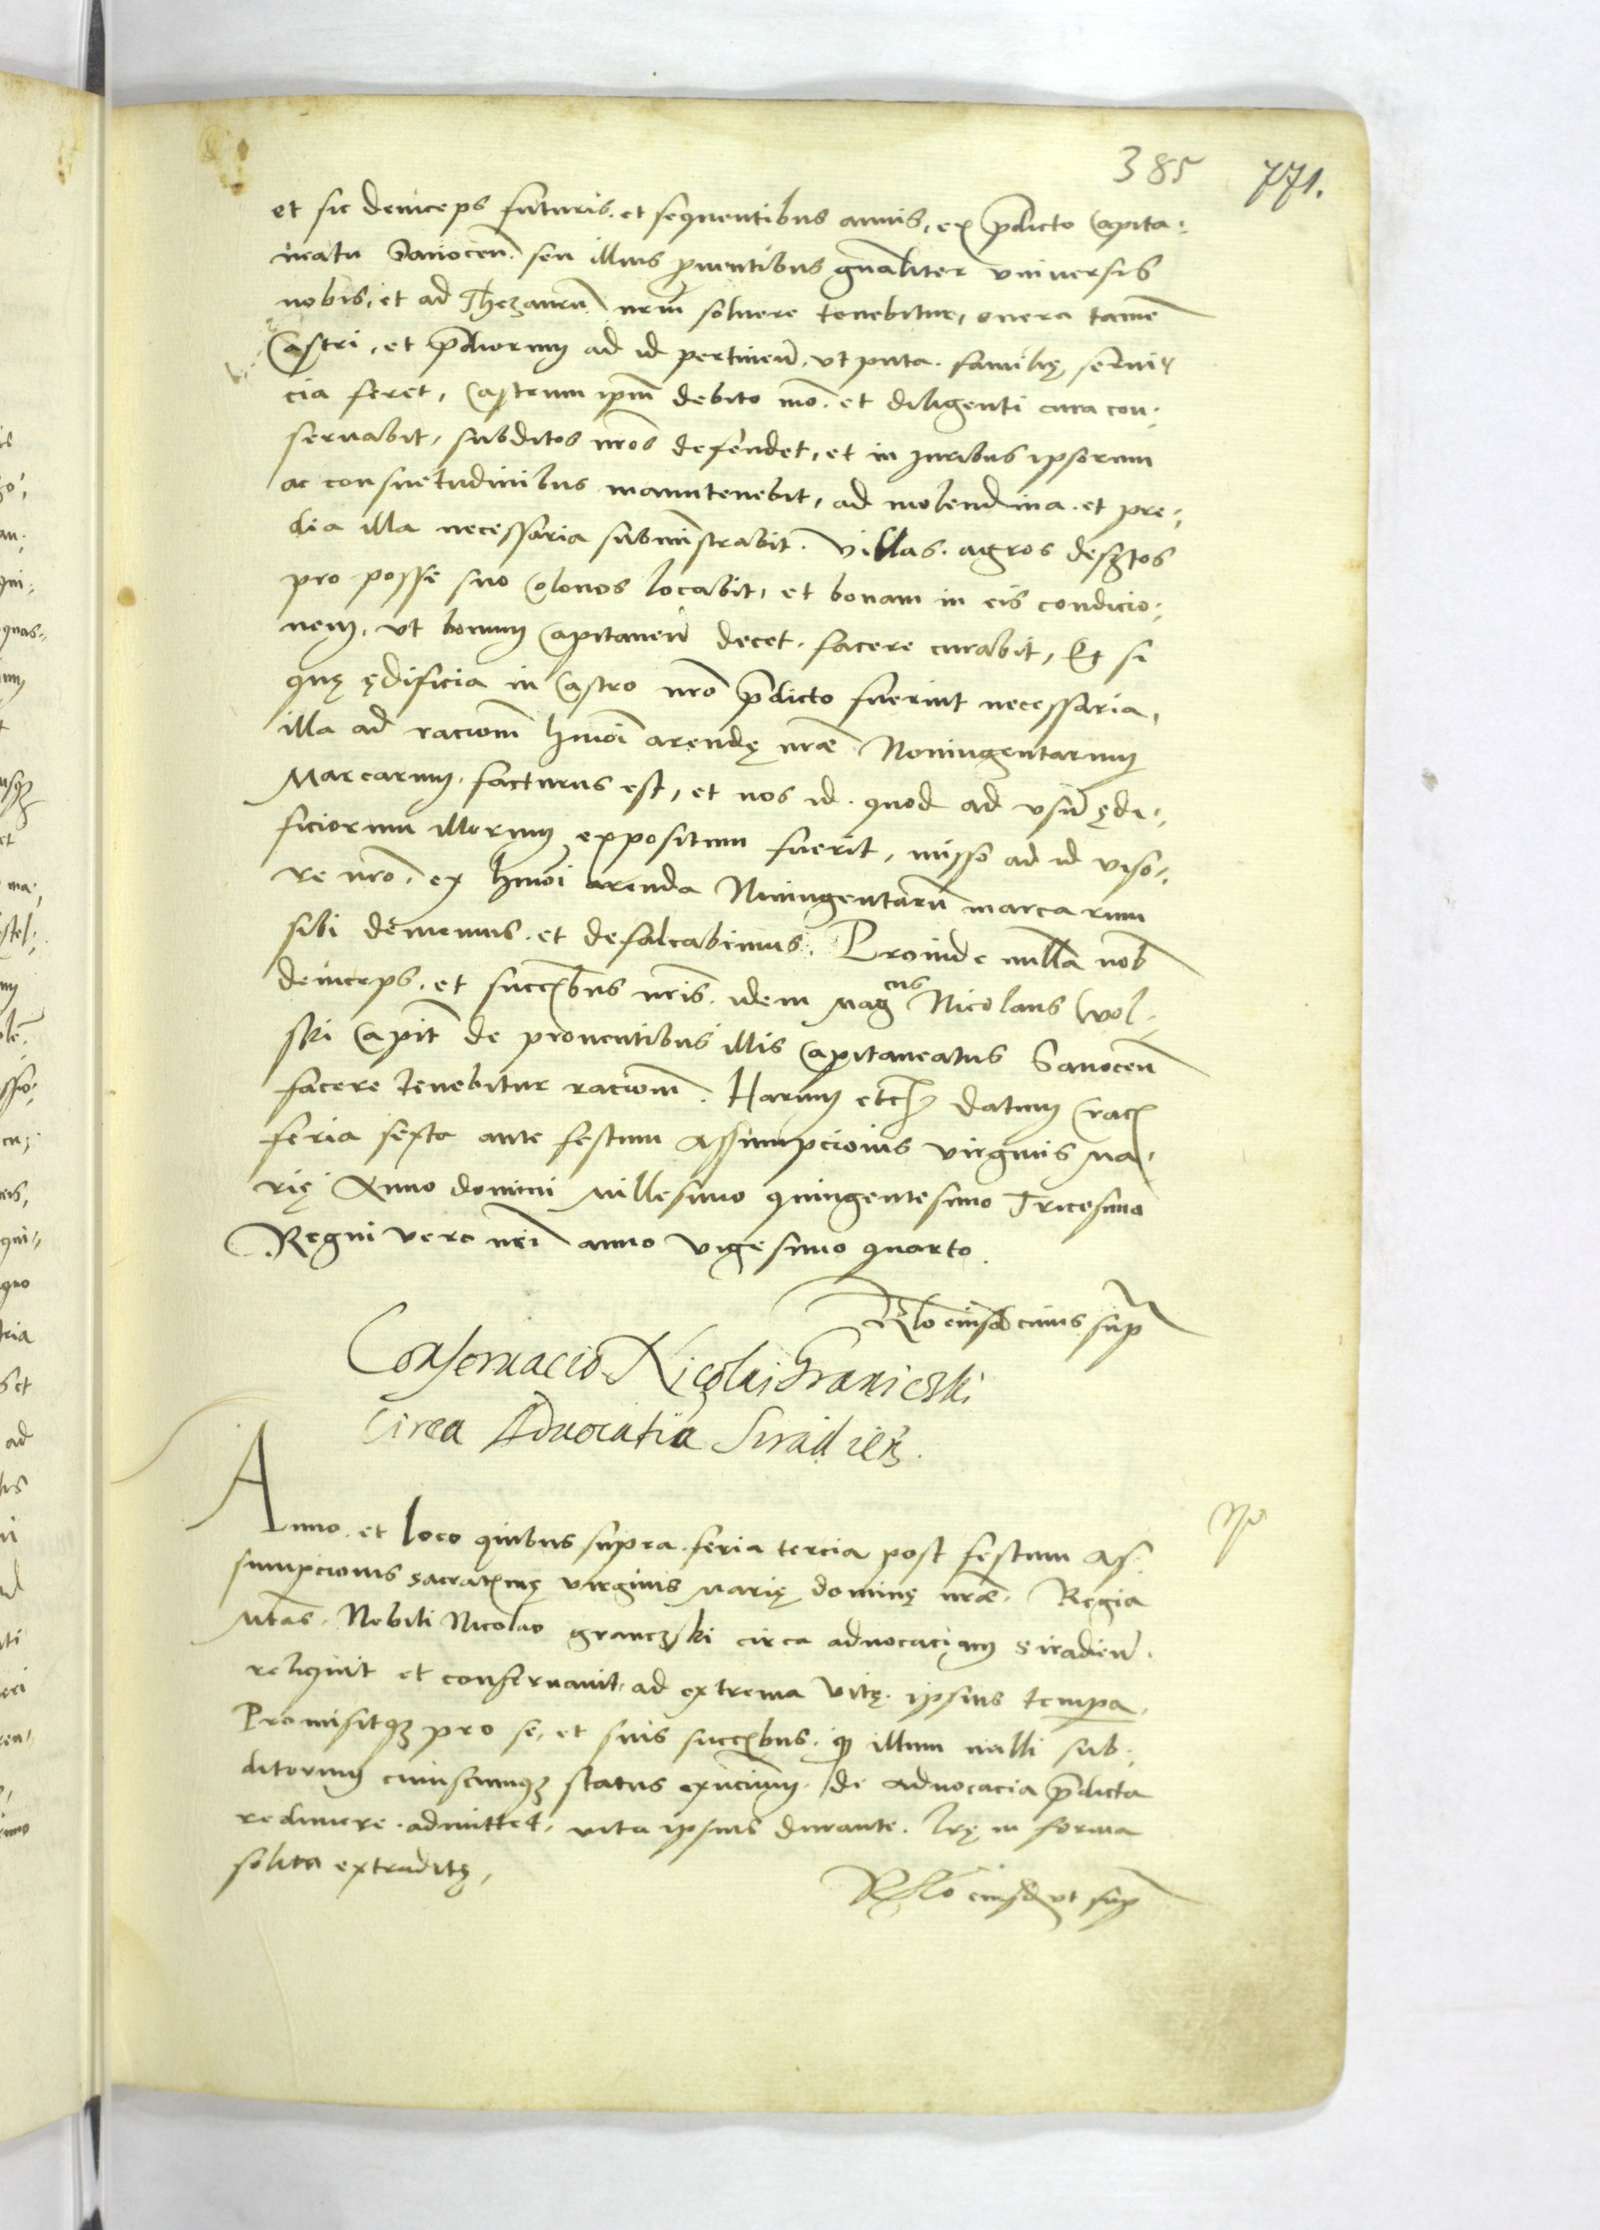 385 771.
et sic deinceps futuris. et sequentibus annis, ex p̄dicto Capita-
neatu Sanocen̄. seu illius ꝓuentibus gn̄aliter vniuersis
nobis, et ad Thezaurū nrm̄ soluere tenebitur, onera tamē
Castri, et p̄diorum ad id pertineñ. vt puta. familię, serui-
cia feret, Castrum ipm̄ debito mō. et diligenti cura con-
seruabit, subditos nr̄os defendet, et in Juribus ipsorum
ac consuetudinibus manutenebit, ad molendina. et pre-
dia illa necessaria submīstrabit. Villas. agros des̄tos
pro posse suo Colonos locabit, et bonam in eis condicio-
nem, vt bonum Capitaneū decet. facere curabit, Et si
quę ędificia in Castro nr̄o p̄dicto fuerint necessaria,
illa ad racionm̄ hmōi arendę nrāe Noningentarum
Marcarum. facturus est, et nos id. quod ad vsū ędi-
ficiorum illorum expositum fuerit, misso ad id viso-
re nr̄o. ex hmōi arenda Noningentarū marcarum
sibi dememus. et defalcabimus. Proinde nulla nob̄
deinceps. et succ̄bus nr̄is. idem Mag cus Nicolaus Wol-
ski Capit̄ de prouentibus illis Capitaneatus Sanocen̄
facere tenebitur racionm̄. Harum etc̄ Datum Crac̄
feria sexta ante festum Assumpcionis virginis Ma-
rię Anno domini Millesimo quingentesimo Tricesimo
Regni vero nr̄i anno vigesimo quarto.
Rlo eiusd cuius sup̄
Conseruacio Nicolai Granicski
circa Aduocatia Siradieñ.
Anno. et loco quibus supra. feria tercia post festum As-
sumpcionis sacratmę virginis Marię dominę nrāe. Regia
Mtas. Nobili Nicolao granczski circa aduocaciam Siradieñ.
reliquit et conseruauit, ad extrema vitę. ipsius tempa.
Promisitqȝ pro se, et suis succ̄bus. qp̄ illum nulli sub-
ditorum cuiuscumqȝ status ex̄ncium. de aduocacia p̄dicta
redimere. admittet, vita ipsius durante. lrę in forma
solita extraditę,
Rlo eiusd vt sup̄